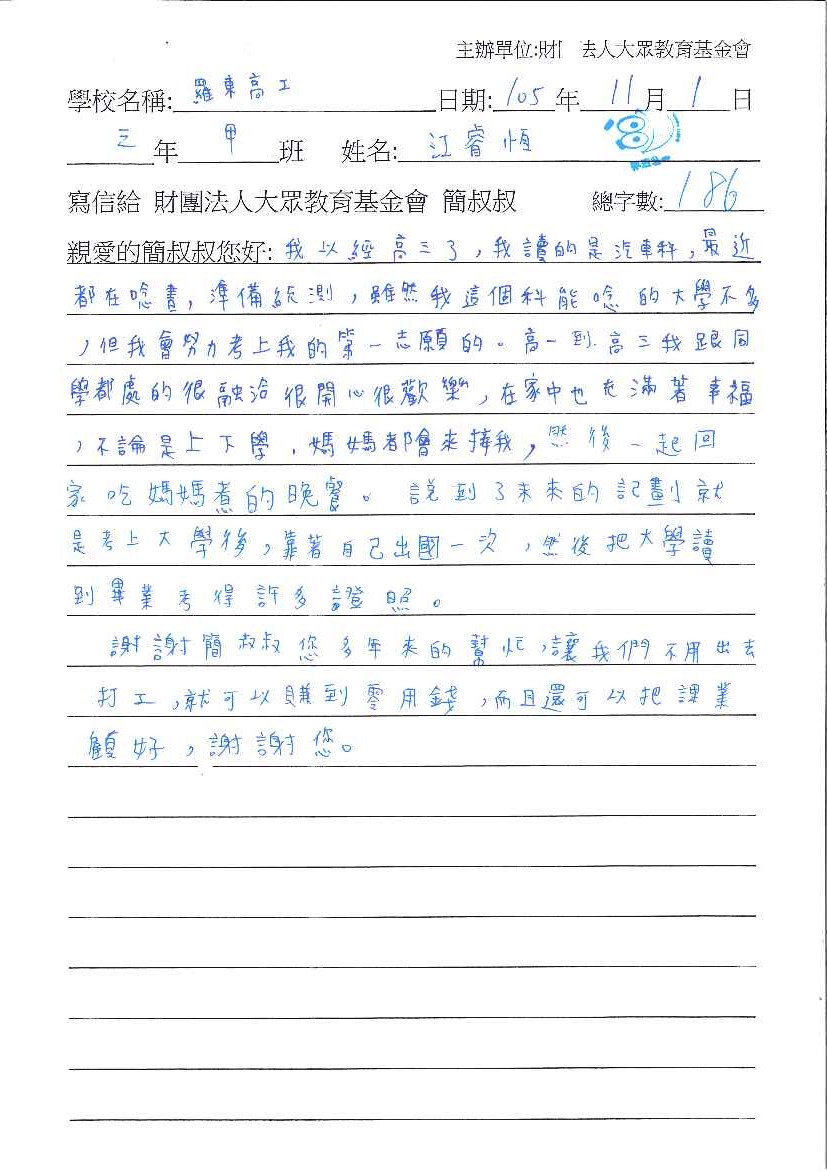 主辦單位:財 法人大眾教育基金會
學校名稱: 羅東高工 日期: 105 年 11 月 1 日
三 年 甲 班 姓名: 江睿恆
寫信給 財團法人大眾教育基金會 簡叔叔 總字數: 186
親愛的簡叔叔您好: 我以經高三了,我讀的是汽車科,最近
都在唸書,準備統測,雖然我這個科能唸的大學不多
,但我會努力考上我的第一志願的。高一到高三我跟同
學都處的很融洽很開心很歡樂,在家中也充滿著幸福
,不論是上下學,媽媽都會來接我,然後一起回
家吃媽媽煮的晚餐。說到了未來的記劃就
是考上大學後,靠著自己出國一次,然後把大學讀
到畢業考得許多證照。
謝謝簡叔叔您多年來的幫忙,讓我們不用出去
打工,就可以賺到零用錢,而且還可以把課業
顧好,謝謝您。